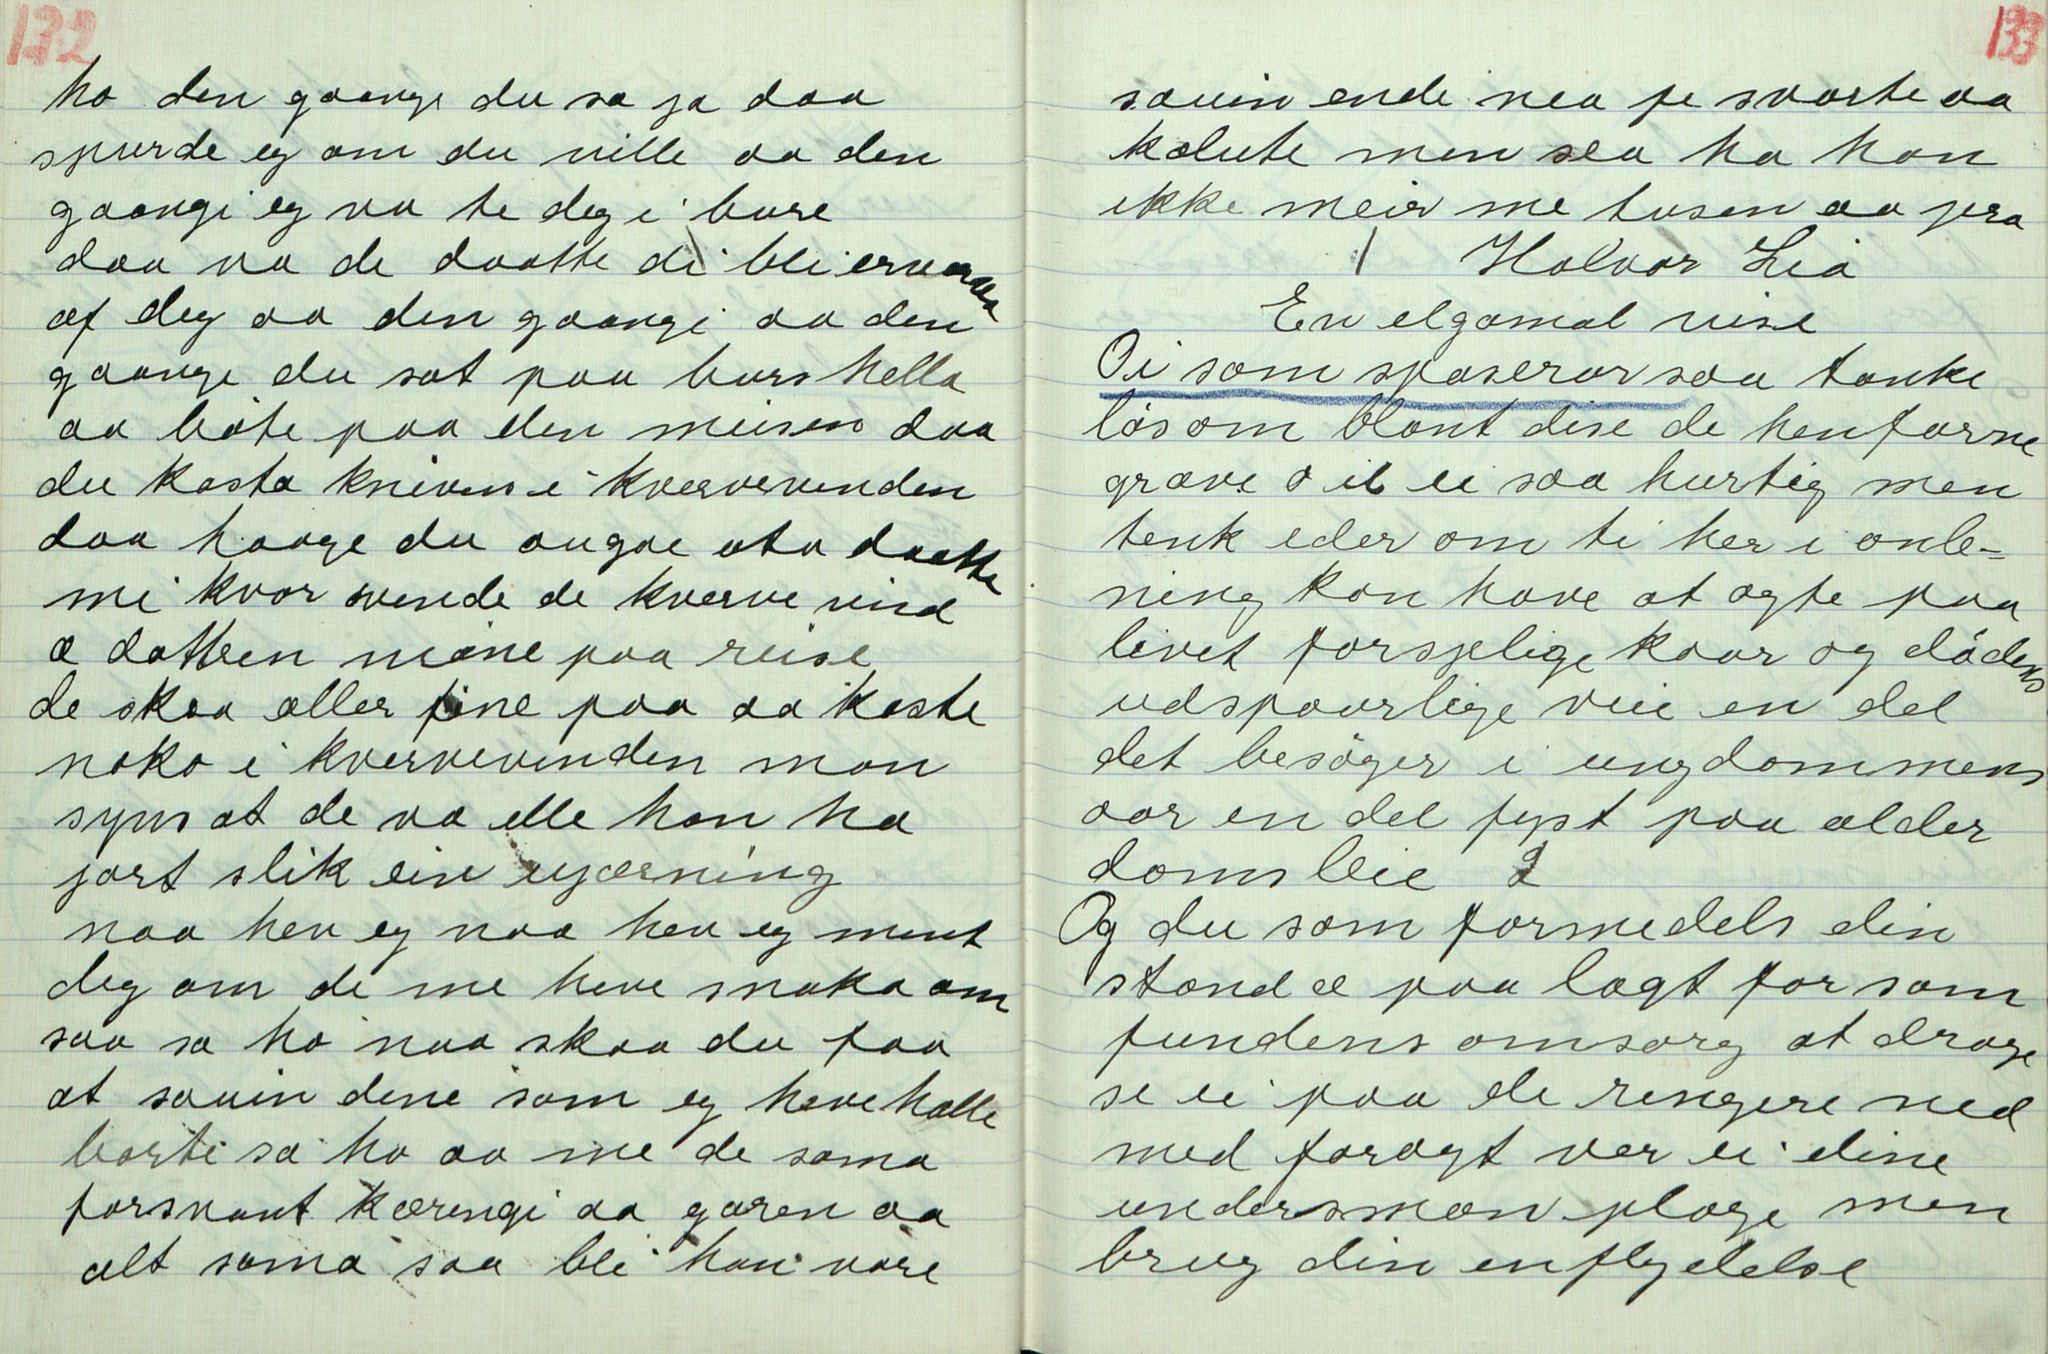 132
ho den gaange du sa ja daa
spurde eg om du ville aa den
gaangi eg va te deg i bure
daa va de daatte di bli ervarda
af deg aa den gaangi aa den
gaange du sat paa burs hella
aa böte paa den meisen daa
du kasta kniven i kververvinden
daa haage du augae uta daatte
mi kvar svende de kverve vind
æ dottren mine paa reise
de skaa aller fine paa aa kaste
noko i kvervevinden man
syns at de va elle han ha
jort slik ein ugjærning
naa hev eg naa hev eg mint
deg om de me heve snaka om
saa sa ho naa skaa du faa
at sauin dene som eg heve halle
borti sa ho aa me de sama
forsvant kæringi aa garen aa
alt sama saa blei han vare
133
sauin ende nea fe svarte aa
kalute men sea ha han
ikke meir me tusen aa jera
Halvor Lia
En elgamal vise
1
O i som spaserar saa tanke
lös om blant dise de henfarne
grave o il ei saa hurtig men
tenk eder om ti her i anle-
ning kan have at agte paa
livet forsjelige kaar og dödens
udspaarlige veie en del
det besöger i ungdommens
aar en del fyst paa alder
doms leie 2
Og du som formedels din
stand æ paa lagt for sam
fundens omsorg at drage
se ei paa de ringere ned
med foragt ver ei dine
undersmæn plage men
brug din enflydelse